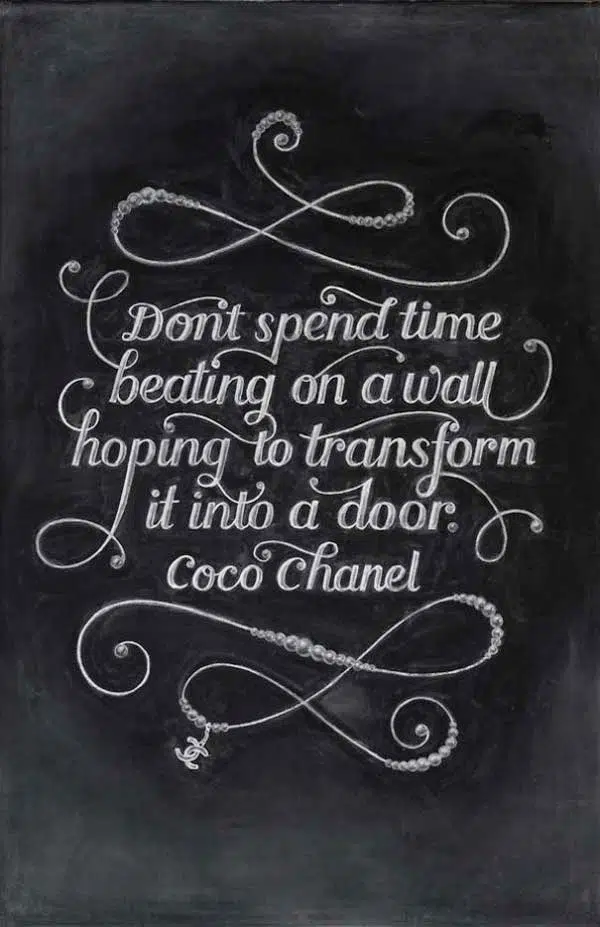 Don't spend time
beating on a wall
hoping to transform
it into a door.
Coco Chanel